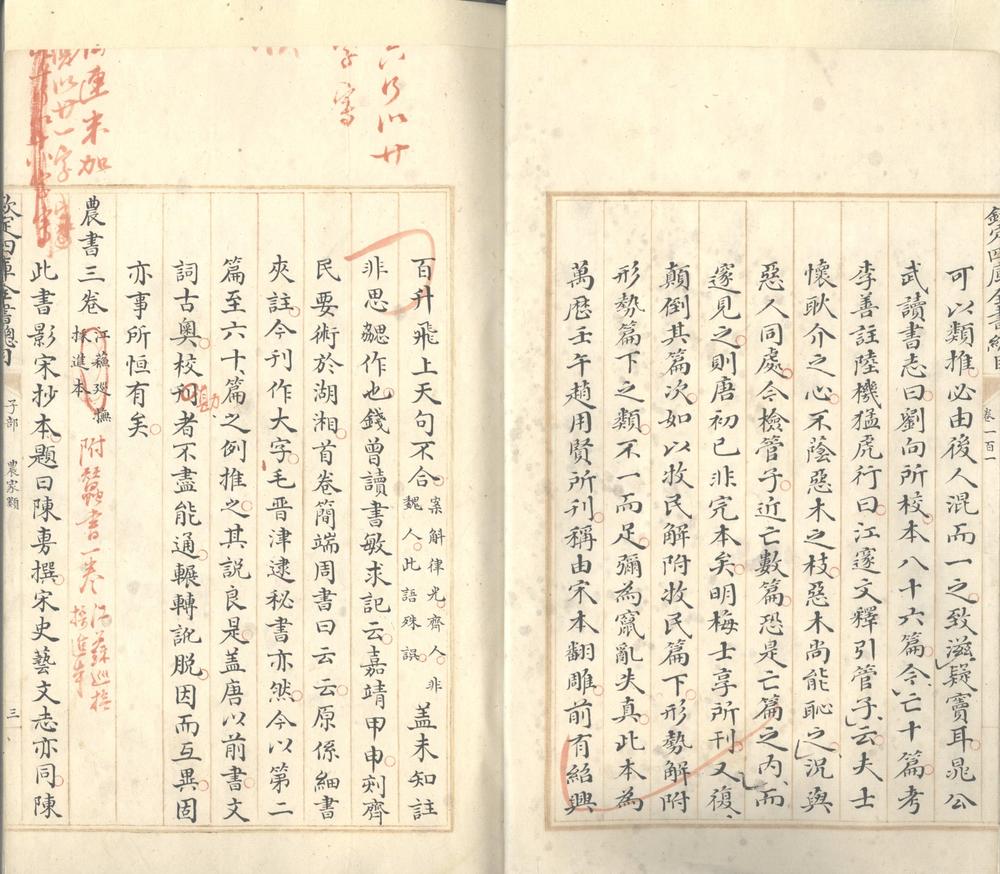 欽定四庫全書總目
卷一百一
可以類推必由後人混而一之致滋疑竇耳晁公
武讀書志曰劉向所校本八十六篇今亡十篇考
李善註陸機猛虎行曰江邃文釋引管子云夫士
懷耿介之心不蔭惡木之枝惡木尚能恥之況與
惡人同處今檢管子近亡數篇恐是亡篇之內而
邃見之則唐初已非完本矣明梅士享所刊又復
顛倒其篇次如以牧民解附牧民篇下形勢解附
形勢篇下之類不一而足彌為竄亂失真此本為
萬歷壬午趙用賢所刊稱由宋本翻雕前有紹興
六行以廿
字寫
百升飛上天句不合案解律光齊人非魏人此語殊誤蓋未知註
非思勰作也錢曾讀書敏求記云嘉靖甲申刻齊
民要術於湖湘首卷簡端周書曰云云原係細書
夾註今刊作大字毛晉津逮秘書亦然今以第二
篇至六十篇之例推之其說良是蓋唐以前書文
詞古奧校刊者不盡能通輾轉訛脫因而互異固
勘
亦事所恒有矣
連朱加
以廿一字
農書三卷江蘇巡撫採進本
附蠶書一卷江蘇巡撫採進本
此書影宋抄本題曰陳旉撰宋史藝文志亦同陳
欽定四庫全書總目
子部
農家類
三